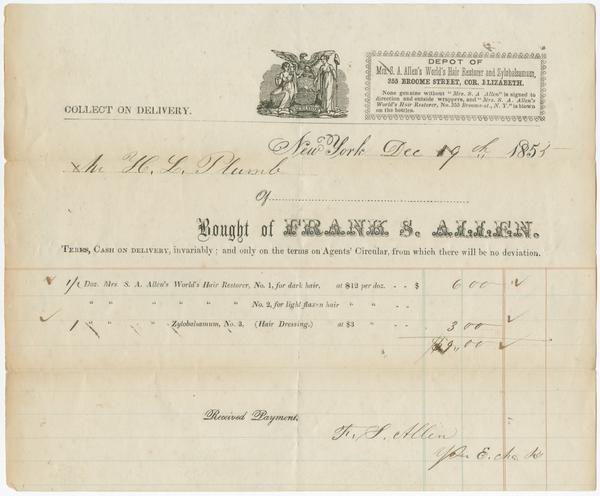 DEPOT OF
Mrs. S. A. Allen's World's Hair Restorer and Zylobalsamum,
355 BROOME STREET, COR. ELIZABETH.
None genuine without "Mrs. S. A. Allen" is signed to
direction and outside wrappers, and "Mrs. S. A. Allen's
World's Hair Restorer, No. 355 Broome-st., N. Y." is blown
on the bottles.
COLLECT ON DELIVERY.
New York Dec 19th 1855
Mr H. L. Plumb
Of
Bought of FRANK S. ALLEN.
TERMS, CASH ON DELIVERY, invariably; and only on the terms on Agents' Circular, from which there will be no deviation.
1/2 Doz. Mrs. S. A. Allen's World's Hair Restorer, No. 1, for dark hair, at $12 per doz. - - $ 6 00
" " " " " " No. 2, for light flaxen hair " " - -
1 " " " Zylobalsamum, No. 3, (Hair Dressing.) at $3 " - - 3 00
$9.00
Received Payment,
F. S. Allen
Per E.